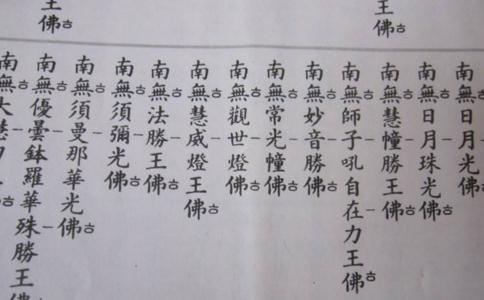 王佛
王佛
南無日月光佛
南無日月珠光佛
南無慧幢勝王佛
南無師子吼自在力王佛
南無妙音勝佛
南無常光幢佛
南無觀世燈佛
南無慧威燈王佛
南無法勝王佛
南無須彌光佛
南無須曼那華光佛
南無優曇鉢羅華殊勝王佛
南無大慧力